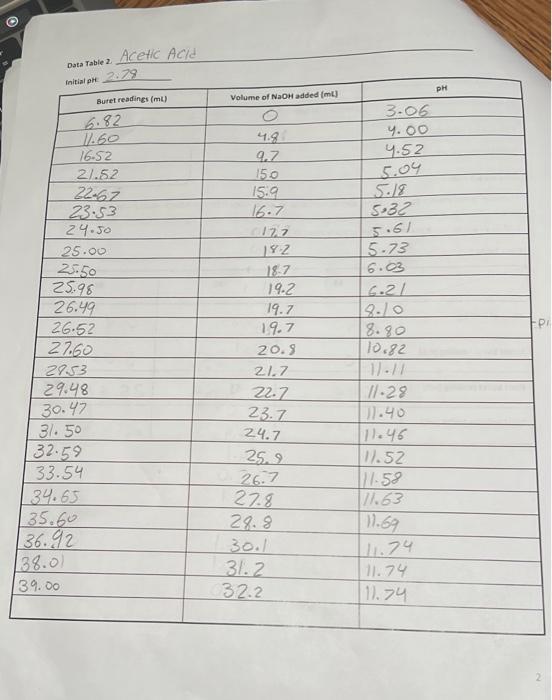 Data Table 2. Acetic Acid
Initial pH: 2.79
Buret readings (mL) Volume of NaOH added (mL) pH
6.82 0 3.06
11.60 4.8 4.00
16.52 9.7 4.52
21.82 15.0 5.04
22.67 15.9 5.18
23.53 16.7 5.32
24.50 17.7 5.61
25.00 18.2 5.73
25.50 18.7 6.03
25.98 19.2 6.21
26.49 19.7 8.10
26.52 19.7 8.80
27.60 20.8 10.82
28.53 21.7 11.11
29.48 22.7 11.28
30.47 23.7 11.40
31.50 24.7 11.46
32.59 25.9 11.52
33.54 26.7 11.58
34.65 27.8 11.63
35.60 28.8 11.69
36.92 30.1 11.74
38.01 31.2 11.74
39.00 32.2 11.74
2